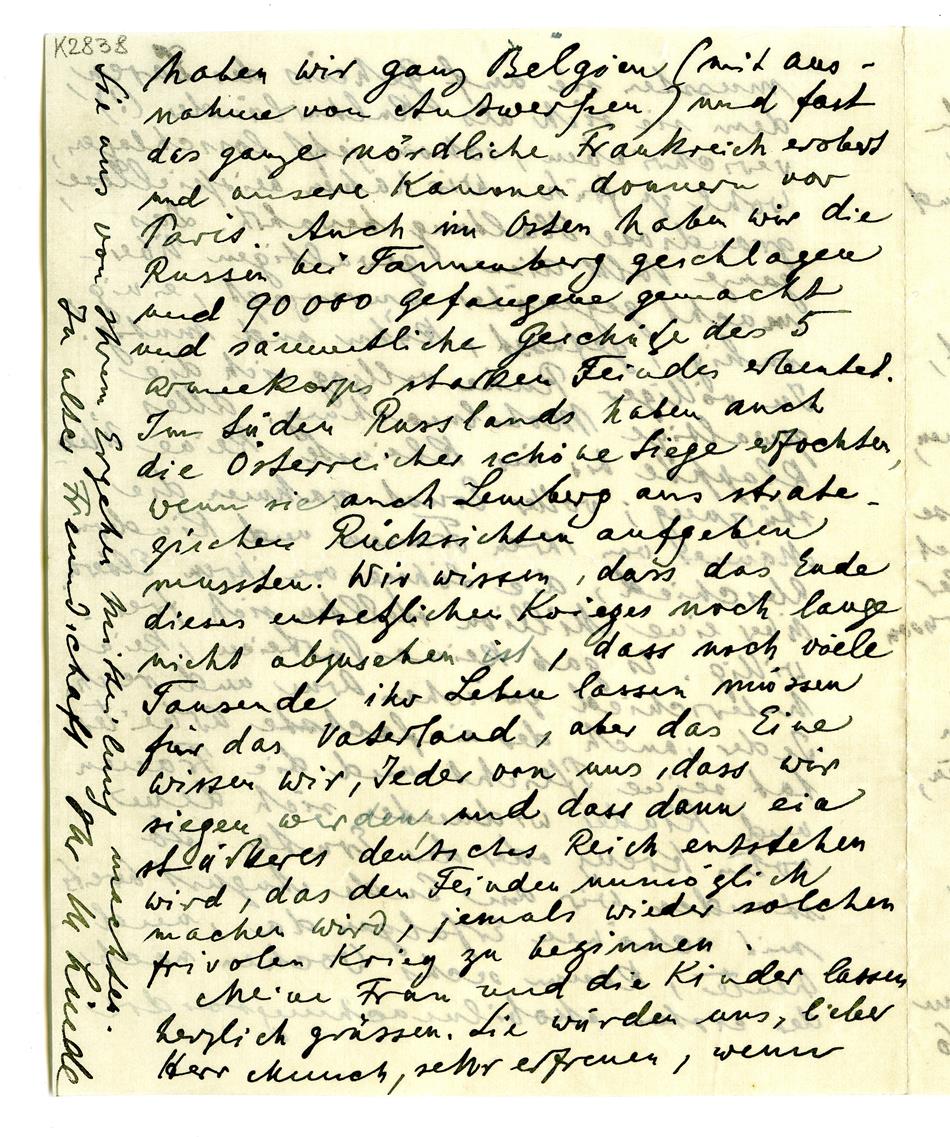 K2838
haben wir ganz Belgien (mit aus-
nahme von Antwerpen) und fast
das ganze nördliche Frankreich erobert
und unsere Kanonen donnern vor
Paris. Auch im Osten haben wir die
Russen bei Tannenberg geschlagen
und 90 000 Gefangene gemacht
und sämmtliche Geschütze des 5
Armeekorps starken Feindes erbeutet.
Im Süden Russlands haben auch
die Österreicher schöne Siege erfochten,
wenn sie auch Lemberg aus strate-
gischen Rücksichten aufgeben
mussten. Wir wissen, dass das Ende
dieses entsetzlichen Krieges noch lange
nicht abzusehen ist, dass noch viele
Tausende ihr Leben lassen müssen
für das Vaterland, aber das Eine
wissen wir, Jeder von uns, dass wir
siegen werden und dass dann ein
stärkeres deutsches Reich entstehen
wird, das den Feinden unmöglich
machen wird, jemals wieder solchen
frivolen Krieg zu beginnen.
Meine Frau und die Kinder lassen
herzlich grüssen. Sie würden uns, lieber
Herr Munch, sehr erfreuen, wenn
Sie uns von Ihrem Ergehen Mittheilung machten.
In alter Freundschaft Ihr Dr Linde